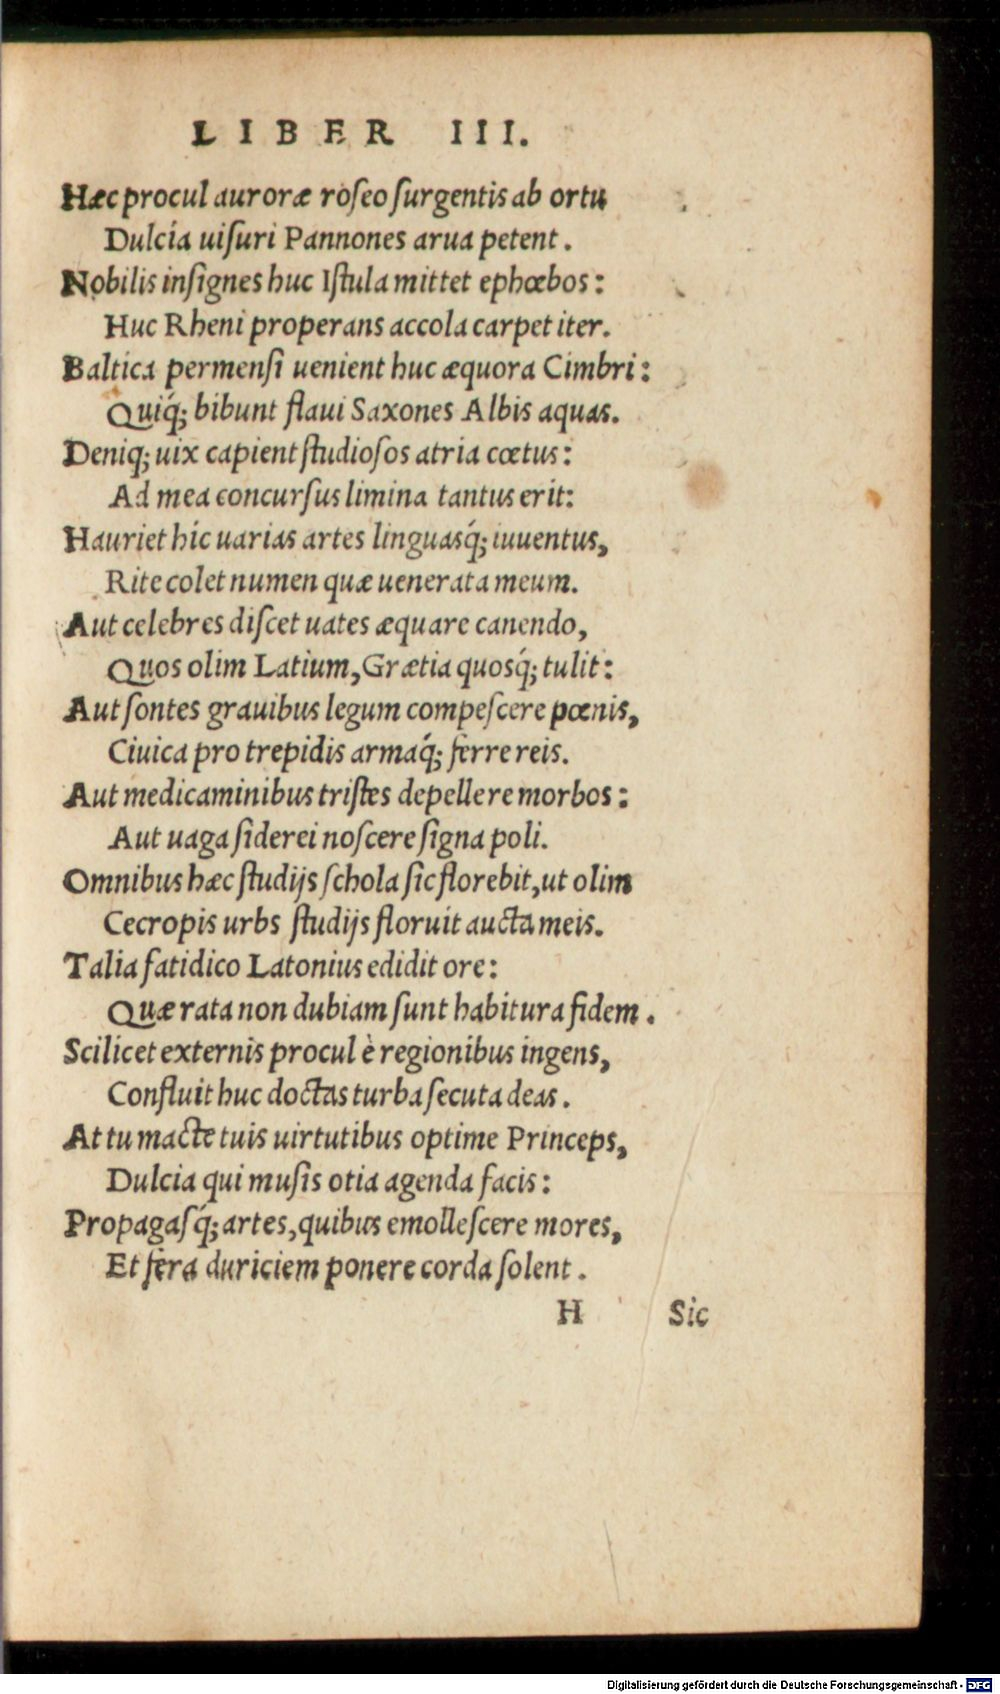 LIBER III.
Hæc procul auroræ roseo surgentis ab ortu
Dulcia uisuri Pannones arua petent.
Nobilis insignes huc Istula mittet ephœbos:
Huc Rheni properans accola carpet iter.
Baltica permensi uenient huc æquora Cimbri:
Quiq́; bibunt flaui Saxones Albis aquas.
Deniq; uix capient studiosos atria cœtus:
Ad mea concursus limina tantus erit:
Hauriet hic uarias artes linguasq́; iuuentus,
Rite colet numen quæ uenerata meum.
Aut celebres discet uates æquare canendo,
Quos olim Latium, Grætia quosq́; tulit:
Aut sontes grauibus legum compescere pœnis,
Ciuica pro trepidis armaq́; ferre reis.
Aut medicaminibus tristes depellere morbos:
Aut uaga siderei noscere signa poli.
Omnibus hæc studijs schola sic florebit, ut olim
Cecropis urbs studijs floruit aucta meis.
Talia fatidico Latonius edidit ore:
Quæ rata non dubiam sunt habitura fidem.
Scilicet externis procul è regionibus ingens,
Confluit huc doctas turba secuta deas.
At tu macte tuis uirtutibus optime Princeps,
Dulcia qui musis otia agenda facis:
Propagasq́; artes, quibus emollescere mores,
Et fera duriciem ponere corda solent.
H Sic
Digitalisierung gefördert durch die Deutsche Forschungsgemeinschaft - DFG